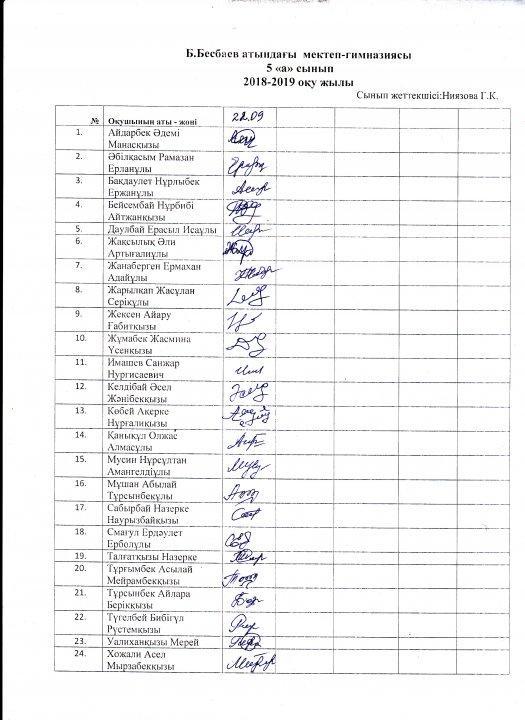 Б.Бесбаев атындағы мектеп-гимназиясы
5 «а» сынып
2018-2019 оқу жылы
Сынып жеттекшісі:Ниязова Г.К.
№ Оқушының аты - жөні 22.09
1. Айдарбек Әдемі
Манасқызы
2. Әбілқасым Рамазан
Ерланұлы
3. Бақдаулет Нұрлыбек
Ержанұлы
4. Бейсембай Нұрбибі
Айтжанқызы
5. Даулбай Ерасыл Исаұлы
6. Жақсылық Әли
Артығалиұлы
7. Жанаберген Ермахан
Адайұлы
8. Жарылқап Жасұлан
Серікұлы
9. Жексен Айару
Ғабитқызы
10. Жұмабек Жасмина
Үсенқызы
11. Имашев Санжар
Нургисаевич
12. Келдібай Әсел
Жәнібекқызы
13. Көбей Ақерке
Нұрғалиқызы
14. Қанықұл Олжас
Алмасұлы
15. Мусин Нұрсұлтан
Амангелдіұлы
16. Мұшан Абылай
Тұрсынбекұлы
17. Сабырбай Назерке
Наурызбайқызы
18. Смағул Ердәулет
Ерболұлы
19. Талғатқызы Назерке
20. Тұрғымбек Асылай
Мейрамбекқызы
21. Тұрсынбек Айлара
Берікқызы
22. Түгелбей Бибігүл
Рүстемқызы
23. Уалиханқызы Мерей
24. Хожали Асел
Мырзабекқызы